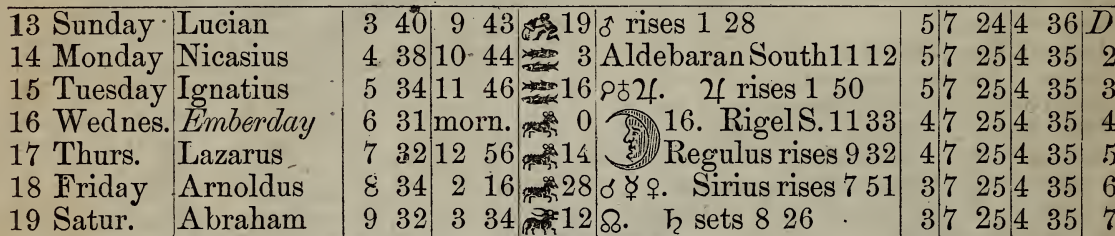 13 Sunday Lucian 3 40 9 43 19 ♂ rises 1 28 5 7 24 4 36 D
14 Monday Nicasius 4 38 10 44 3 Aldebaran South 11 12 5 7 25 4 35 2
15 Tuesday Ignatius 5 34 11 46 16 ♀☍♃. ♃ rises 1 50 5 7 25 4 35 3
16 Wednes. Emberday 6 31 morn. 0 16. Rigel S. 11 33 4 7 25 4 35 4
17 Thurs. Lazarus 7 32 12 56 14 Regulus rises 9 32 4 7 25 4 35 5
18 Friday Arnoldus 8 34 2 16 28 ☌ ☿ ♀. Sirius rises 7 51 3 7 25 4 35 6
19 Satur. Abraham 9 32 3 34 12 ☊. ♄ sets 8 26 3 7 25 4 35 7